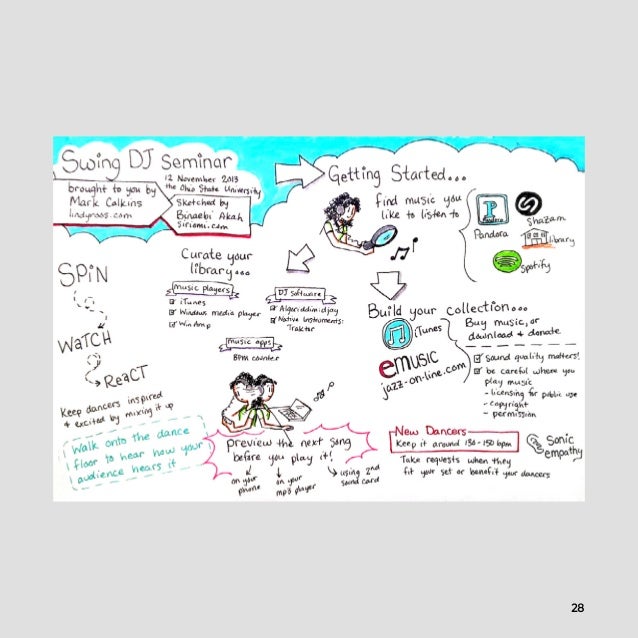 Swing DJ Seminar
12 November 2013
the Ohio State University
brought to you by
Mark Calkins
lindynoos.com
Sketched by
Binaebi Akah
Siriomi.com
Getting Started...
find music you
like to listen to
P
Pandora
Pandora
Shazam
library
Spotify
Curate your
library...
music players
iTunes
Windows media player
Winamp
DJ software
Algoriddim: djay
Native Instruments:
Traktor
music apps
BPM counter
Build your collection...
iTunes
emusic
jazz-on-line.com
Buy music, or
download & donate
sound quality matters!
be careful where you
play music
- licensing for public use
- copyright
- permission
SPiN
WaTCH
ReaCT
Keep dancers inspired
& excited by mixing it up
Walk onto the dance
floor to hear how your
audience hears it
preview the next song
before you play it!
on your
phone
on your
mp3 player
using 2nd
sound card
New Dancers
Keep it around 130-150 bpm
Take requests when they
fit your set or benefit your dancers
Sonic
empathy
28